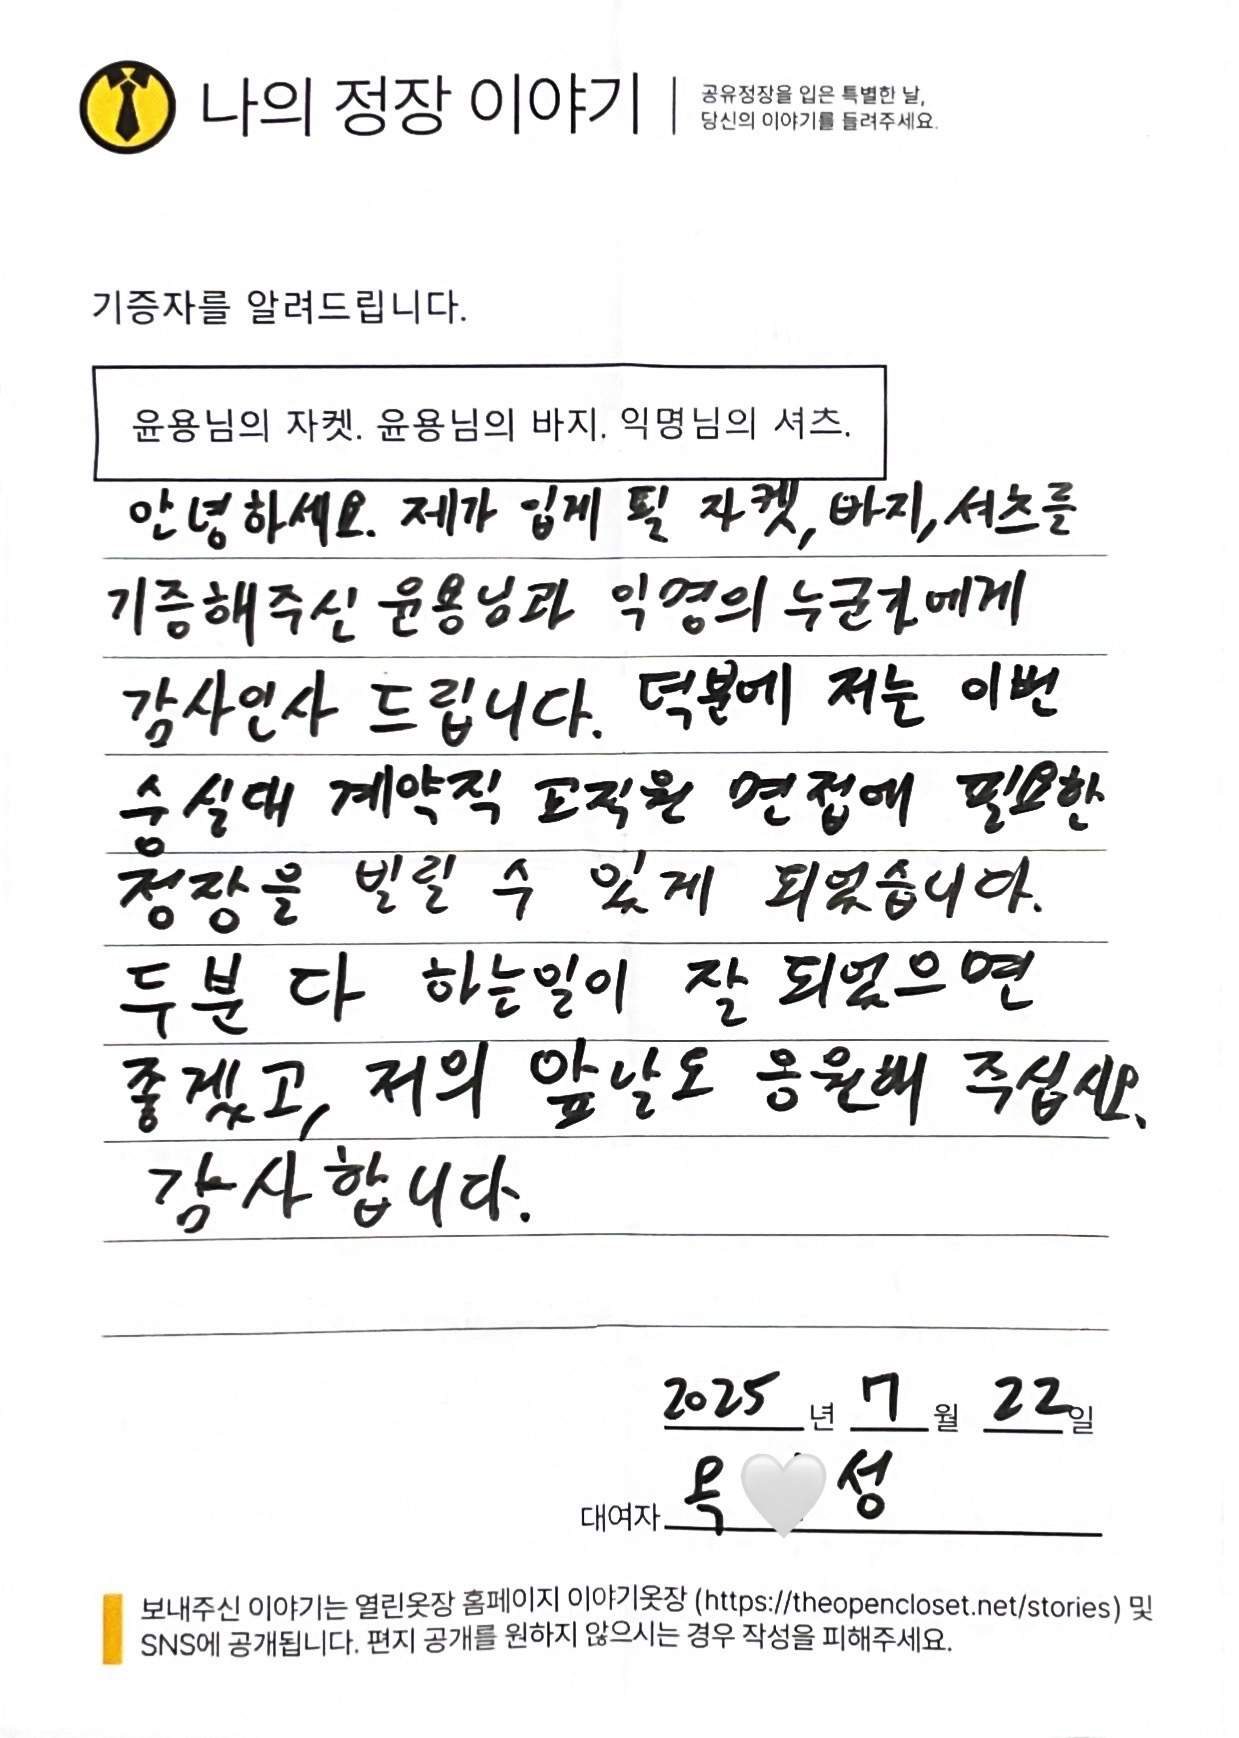 나의 정장 이야기
공유정장을 입은 특별한 날,
당신의 이야기를 들려주세요.
기증자를 알려드립니다.
윤용님의 자켓. 윤용님의 바지. 익명님의 셔츠.
안녕하세요. 제가 입게 될 자켓, 바지, 셔츠를
기증해주신 윤용님과 익명의 누군가에게
감사인사 드립니다. 덕분에 저는 이번
숭실대 계약직 교직원 면접에 필요한
정장을 빌릴 수 있게 되었습니다.
두분 다 하는일이 잘 되었으면
좋겠고, 저의 앞날도 응원해 주십시오.
감사합니다.
2025년 7월 22일
대여자 목 성
보내주신 이야기는 열린옷장 홈페이지 이야기옷장 (https://theopencloset.net/stories) 및
SNS에 공개됩니다. 편지 공개를 원하지 않으시는 경우 작성을 피해주세요.